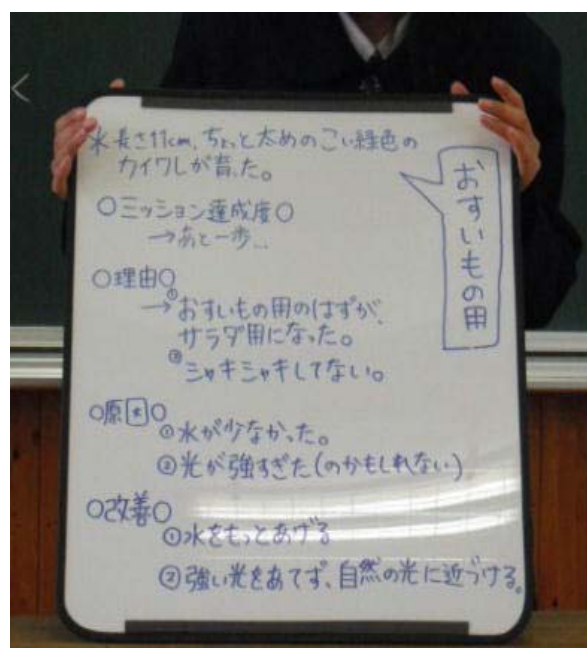 ※長さ11cm、ちょっと太めのこい緑色の
カイワレが育った。
おすいもの用
○ミッション達成度○
→あと一歩…
○理由○
→①おすいもの用のはずが、
サラダ用になった。
②シャキシャキしてない。
○原因○
①水が少なかった。
②光が強すぎた(のかもしれない)
○改善○
①水をもっとあげる
②強い光をあてず、自然の光に近づける。